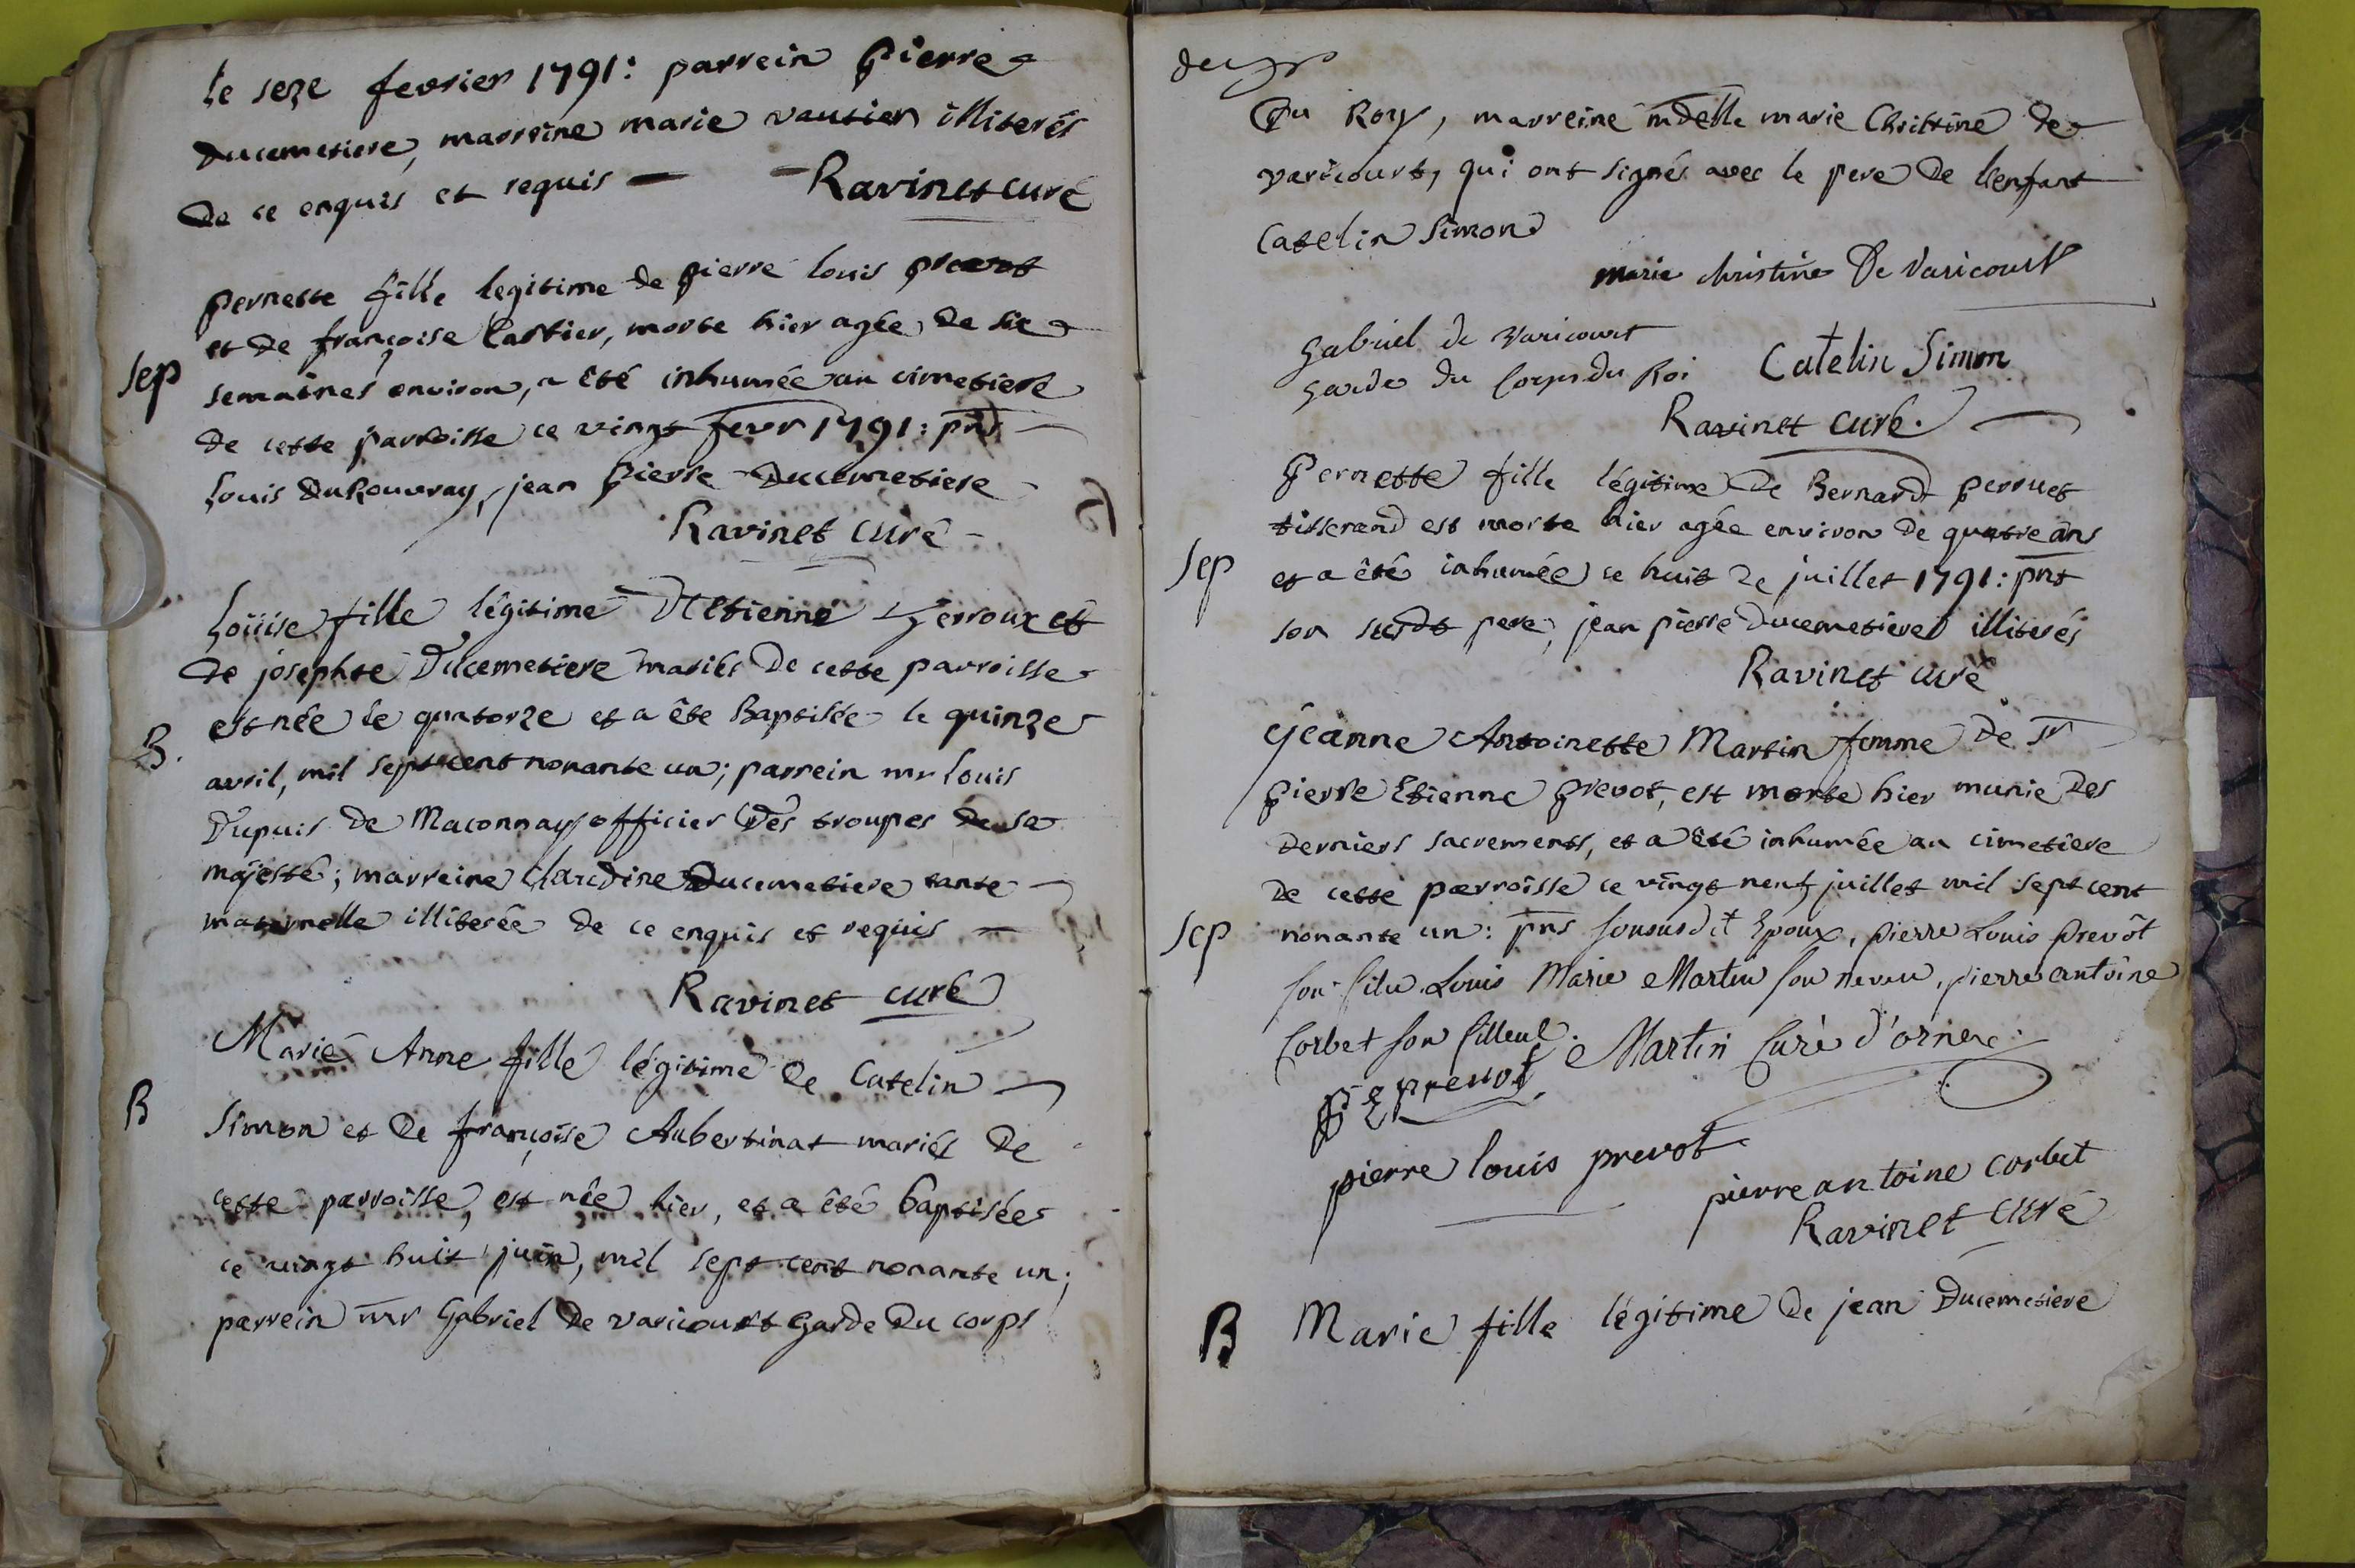 le seze fevrier 1791: parrein pierre
Ducemetiere, marreine marie vautier illiterés
de ce enquis et requis — Ravinet curé
pernette fille legitime de pierre louis prevot
et de françoise Castier, morte hier agée de six
Sep
semaines environ, a été inhumée au cimetiere
de cette parroisse ce vingt fevr 1791: pnts
louis DuRouvray, jean pierre Ducemetiere
Ravinet curé
Loüise fille légitime d'Etienne et
de josephte Ducemetiere mariés de cette parroisse
est née le quatorze et a été Baptisée le quinze
B.
avril, mil sept cent nonante un; parrein mr louis
Dupuis de Maconnay officier des troupes de sa
majesté; marreine Claudine Ducemetiere tante
maternelle illiterée de ce enquis et requis —
Ravinet curé
Marie Anne fille légitime de Catelin
B
Simon et de françoise Aubertinat mariés de
cette parroisse, est née hier, et a été baptisée
ce vingt huit juin, mil sept cent nonante un;
parrein mr Gabriel de varicourt garde du corps
Du Roy, marreine mdelle marie Christine de
varicourt, qui ont signés avec le pere de l'enfant
Catelin Simon
marie christine De Varicourt
gabriel de varicourt
garde du corps du Roi Catelin Simon
Ravinet curé.
Pernette fille légitime de Bernard perruet
tisserand est morte hier agée environ de quatre ans
Sep
et a été inhumée ce huit de juillet 1791: pnt
son susdt pere, jean pierre Ducemetiere illiterés
Ravinet curé
Jeanne Antoinette Martin femme de Sr
pierre Etienne prevot, est morte hier munie des
derniers sacrements, et a été inhumée au cimetiere
de cette parroisse ce vingt neuf juillet mil sept cent
Sep
nonante un: pnts son susdit Epoux, pierre Louis prevôt
son fils Louis Marie Martin son neveu, pierre antoine
Corbet son filleul. Martin Curé d'ornex
P E prevot
pierre louis prevot
pierre antoine corbet
Ravinet curé
B
Marie fille légitime de jean Ducemetiere